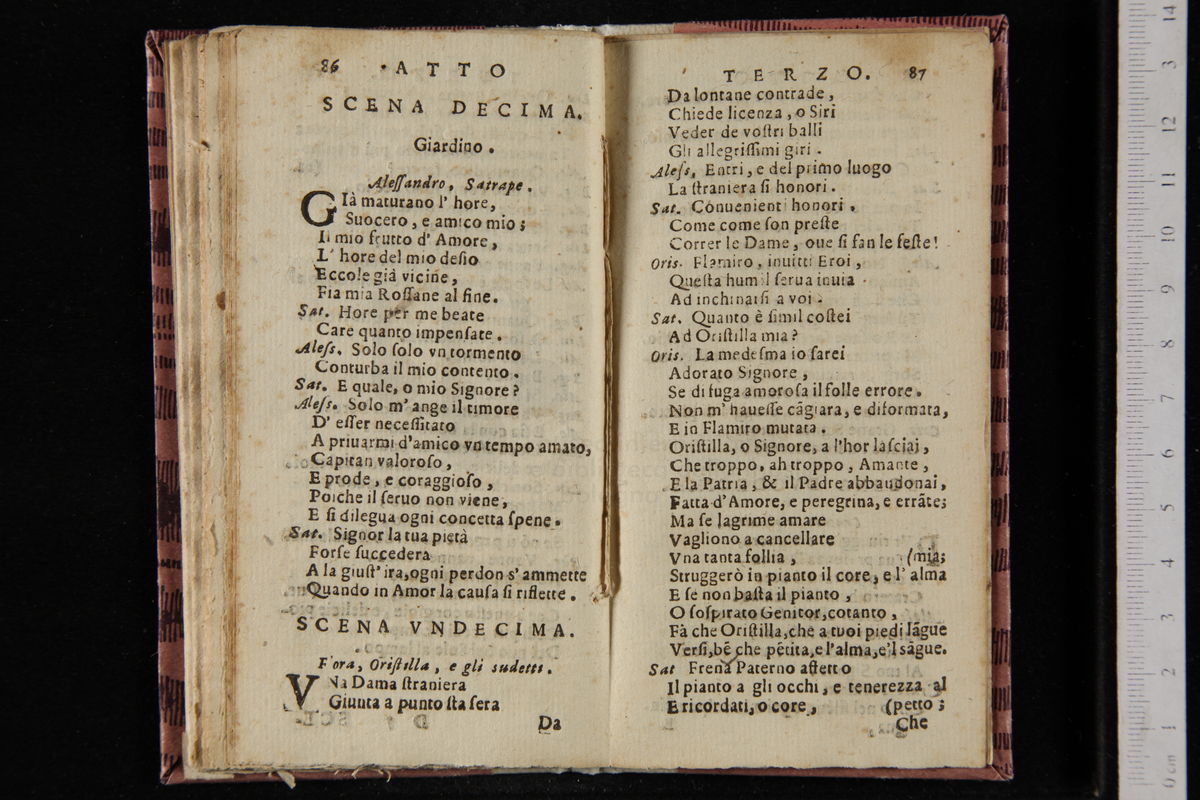 86 ATTO
SCENA DECIMA.
Giardino.
Aleſſandro, Satrape.
GIà maturano l' hore,
Suocero, e amico mio;
Il mio frutto d' Amore,
L' hore del mio deſio
Eccole già vicine,
Fia mia Roſſane al fine.
Sat. Hore per me beate
Care quanto impenſate.
Aleſs. Solo ſolo vn tormento
Conturba il mio contento.
Sat. E quale, o mio Signore?
Aleſs. Solo m' ange il timore
D' eſſer neceſſitato
A priuarmi d'amico vn tempo amato,
Capitan valoroſo,
E prode, e coraggioſo,
Poiche il ſeruo non viene,
E ſi dilegua ogni concetta ſpene.
Sat. Signor la tua pietà
Forſe ſuccederà
A la giuſt' ira, ogni perdon s' ammette
Quando in Amor la cauſa ſi riflette.
SCENA VNDECIMA.
Fora, Oriſtilla, e gli sudetti.
VNa Dama ſtraniera
Giunta a punto ſta ſera
Da
TERZO. 87
Da lontane contrade,
Chiede licenza, o Siri
Veder de voſtri balli
Gli allegriſſimi giri.
Aleſs. Entri, e del primo luogo
La ſtraniera ſi honori.
Sat. Conuenienti honori.
Come come ſon preſte
Correr le Dame, oue ſi fan le feſte!
Oris. Flamiro, inuitti Eroi,
Queſta humil ſerua inuia
Ad inchinarſi a voi.
Sat. Quanto è ſimil coſtei
Ad Oriſtilla mia?
Oris. La medeſma io ſarei
Adorato Signore,
Se di fuga amoroſa il folle errore.
Non m' haueſſe cãgiara, e diformata,
E in Flamiro mutata.
Oriſtilla, o Signore, a l'hor laſciai,
Che troppo, ah troppo, Amante,
E la Patria, & il Padre abbaudonai,
Fatta d' Amore, e peregrina, e errãte;
Ma ſe lagrime amare
Vagliono a cancellare
Vna tanta follia, (mia;
Struggerò in pianto il core, e l' alma
E ſe non baſta il pianto,
O ſoſpirato Genitor, cotanto,
Fà che Oriſtilla, che a tuoi piedi lãgue
Verſi, bẽ che pẽtita, e l'alma, e'l sãgue.
Sat Frena Paterno affetto
Il pianto a gli occhi, e tenerezza al
E ricordati, o core, (petto;
Che